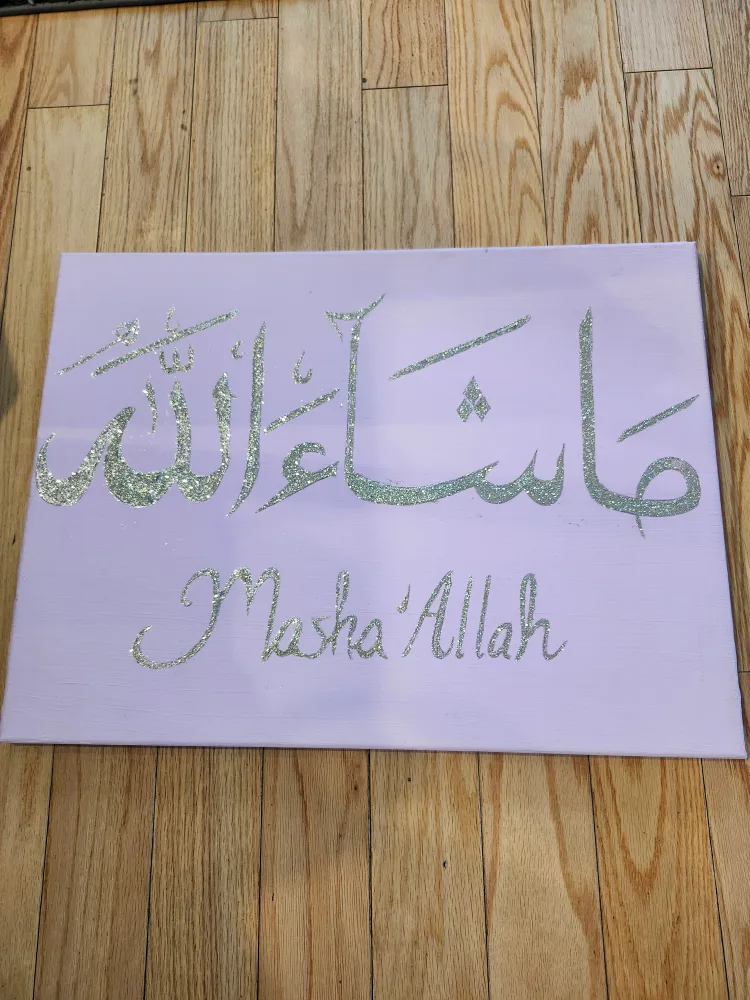 مَا شَآءَ ٱللَّٰهُ
Masha'Allah